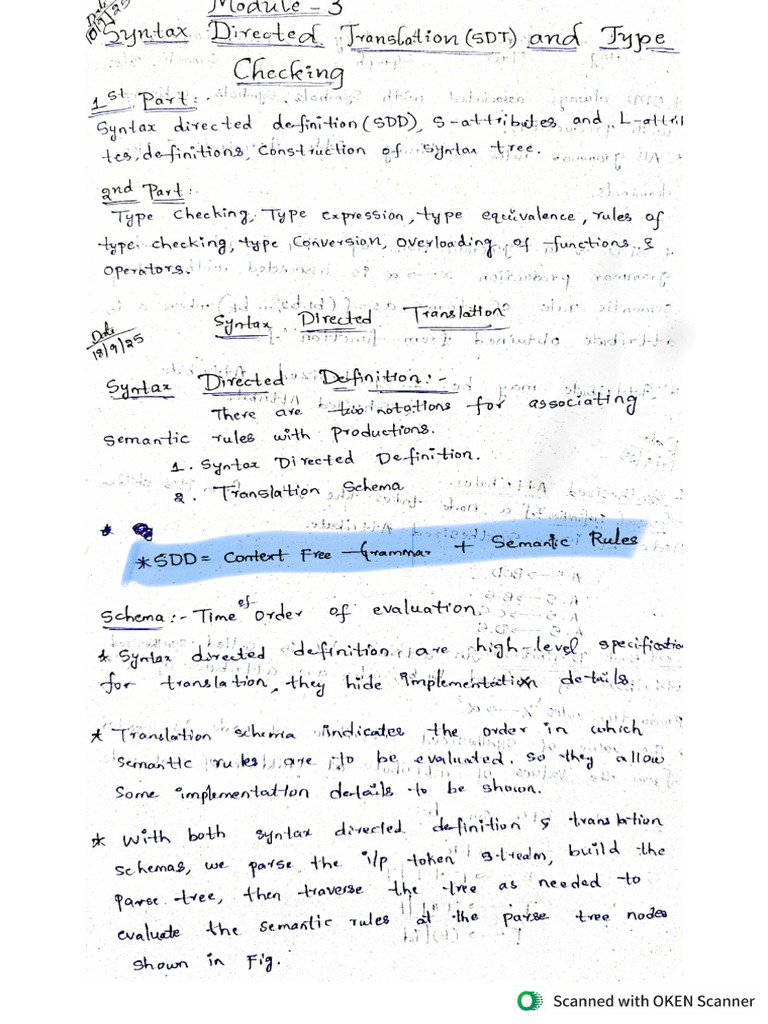 Date
18/9/25
Module - 3
Syntax Directed Translation (SDT) and Type
Checking
1st Part:-
Syntax directed definition (SDD), S-attributes and L-attri
tes, definitions, construction of syntax tree.
2nd Part:-
Type checking, Type expression, type equivalence, rules of
type checking, type conversion, overloading of functions &
operators.
Date
18/9/25
Syntax Directed Translation
Syntax Directed Definition:-
There are two notations for associating
semantic rules with productions.
1. Syntax Directed Definition.
2. Translation Schema
*
* SDD = Context Free Grammar + Semantic Rules
Schema:- Time of order of evaluation.
* Syntax directed definition are high-level specificatio
for translation, they hide implementation details.
* Translation schema indicates the order in which
semantic rules are to be evaluated. so they allow
some implementation details to be shown.
* With both syntax directed definition & translation
schemas, we parse the i/p token stream, build the
parse tree, then traverse the tree as needed to
evaluate the semantic rules at the parse tree nodes
shown in Fig.
Scanned with OKEN Scanner